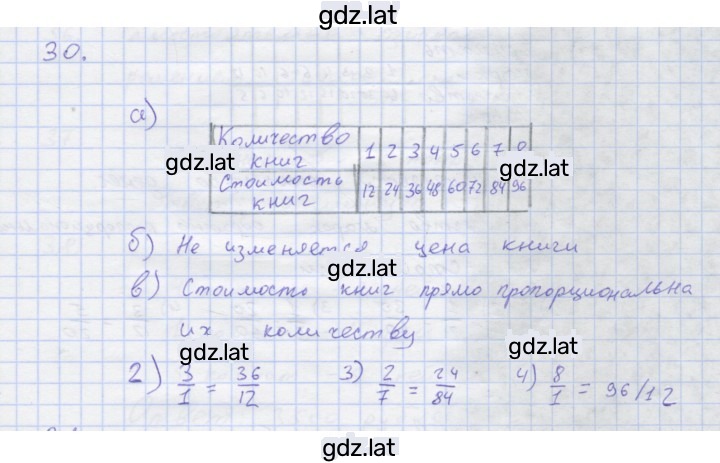 gdz.lat
30.
а)
Количество книг 1 2 3 4 5 6 7 8
gdz.lat gdz.lat
Стоимость книг 12 24 36 48 60 72 84 96
б) Не изменяется цена книги
gdz.lat
в) Стоимость книг прямо пропорциональна
их количеству
gdz.lat gdz.lat
2) 3/1 = 36/12 3) 2/7 = 24/84 4) 8/1 = 96/12
gdz.lat